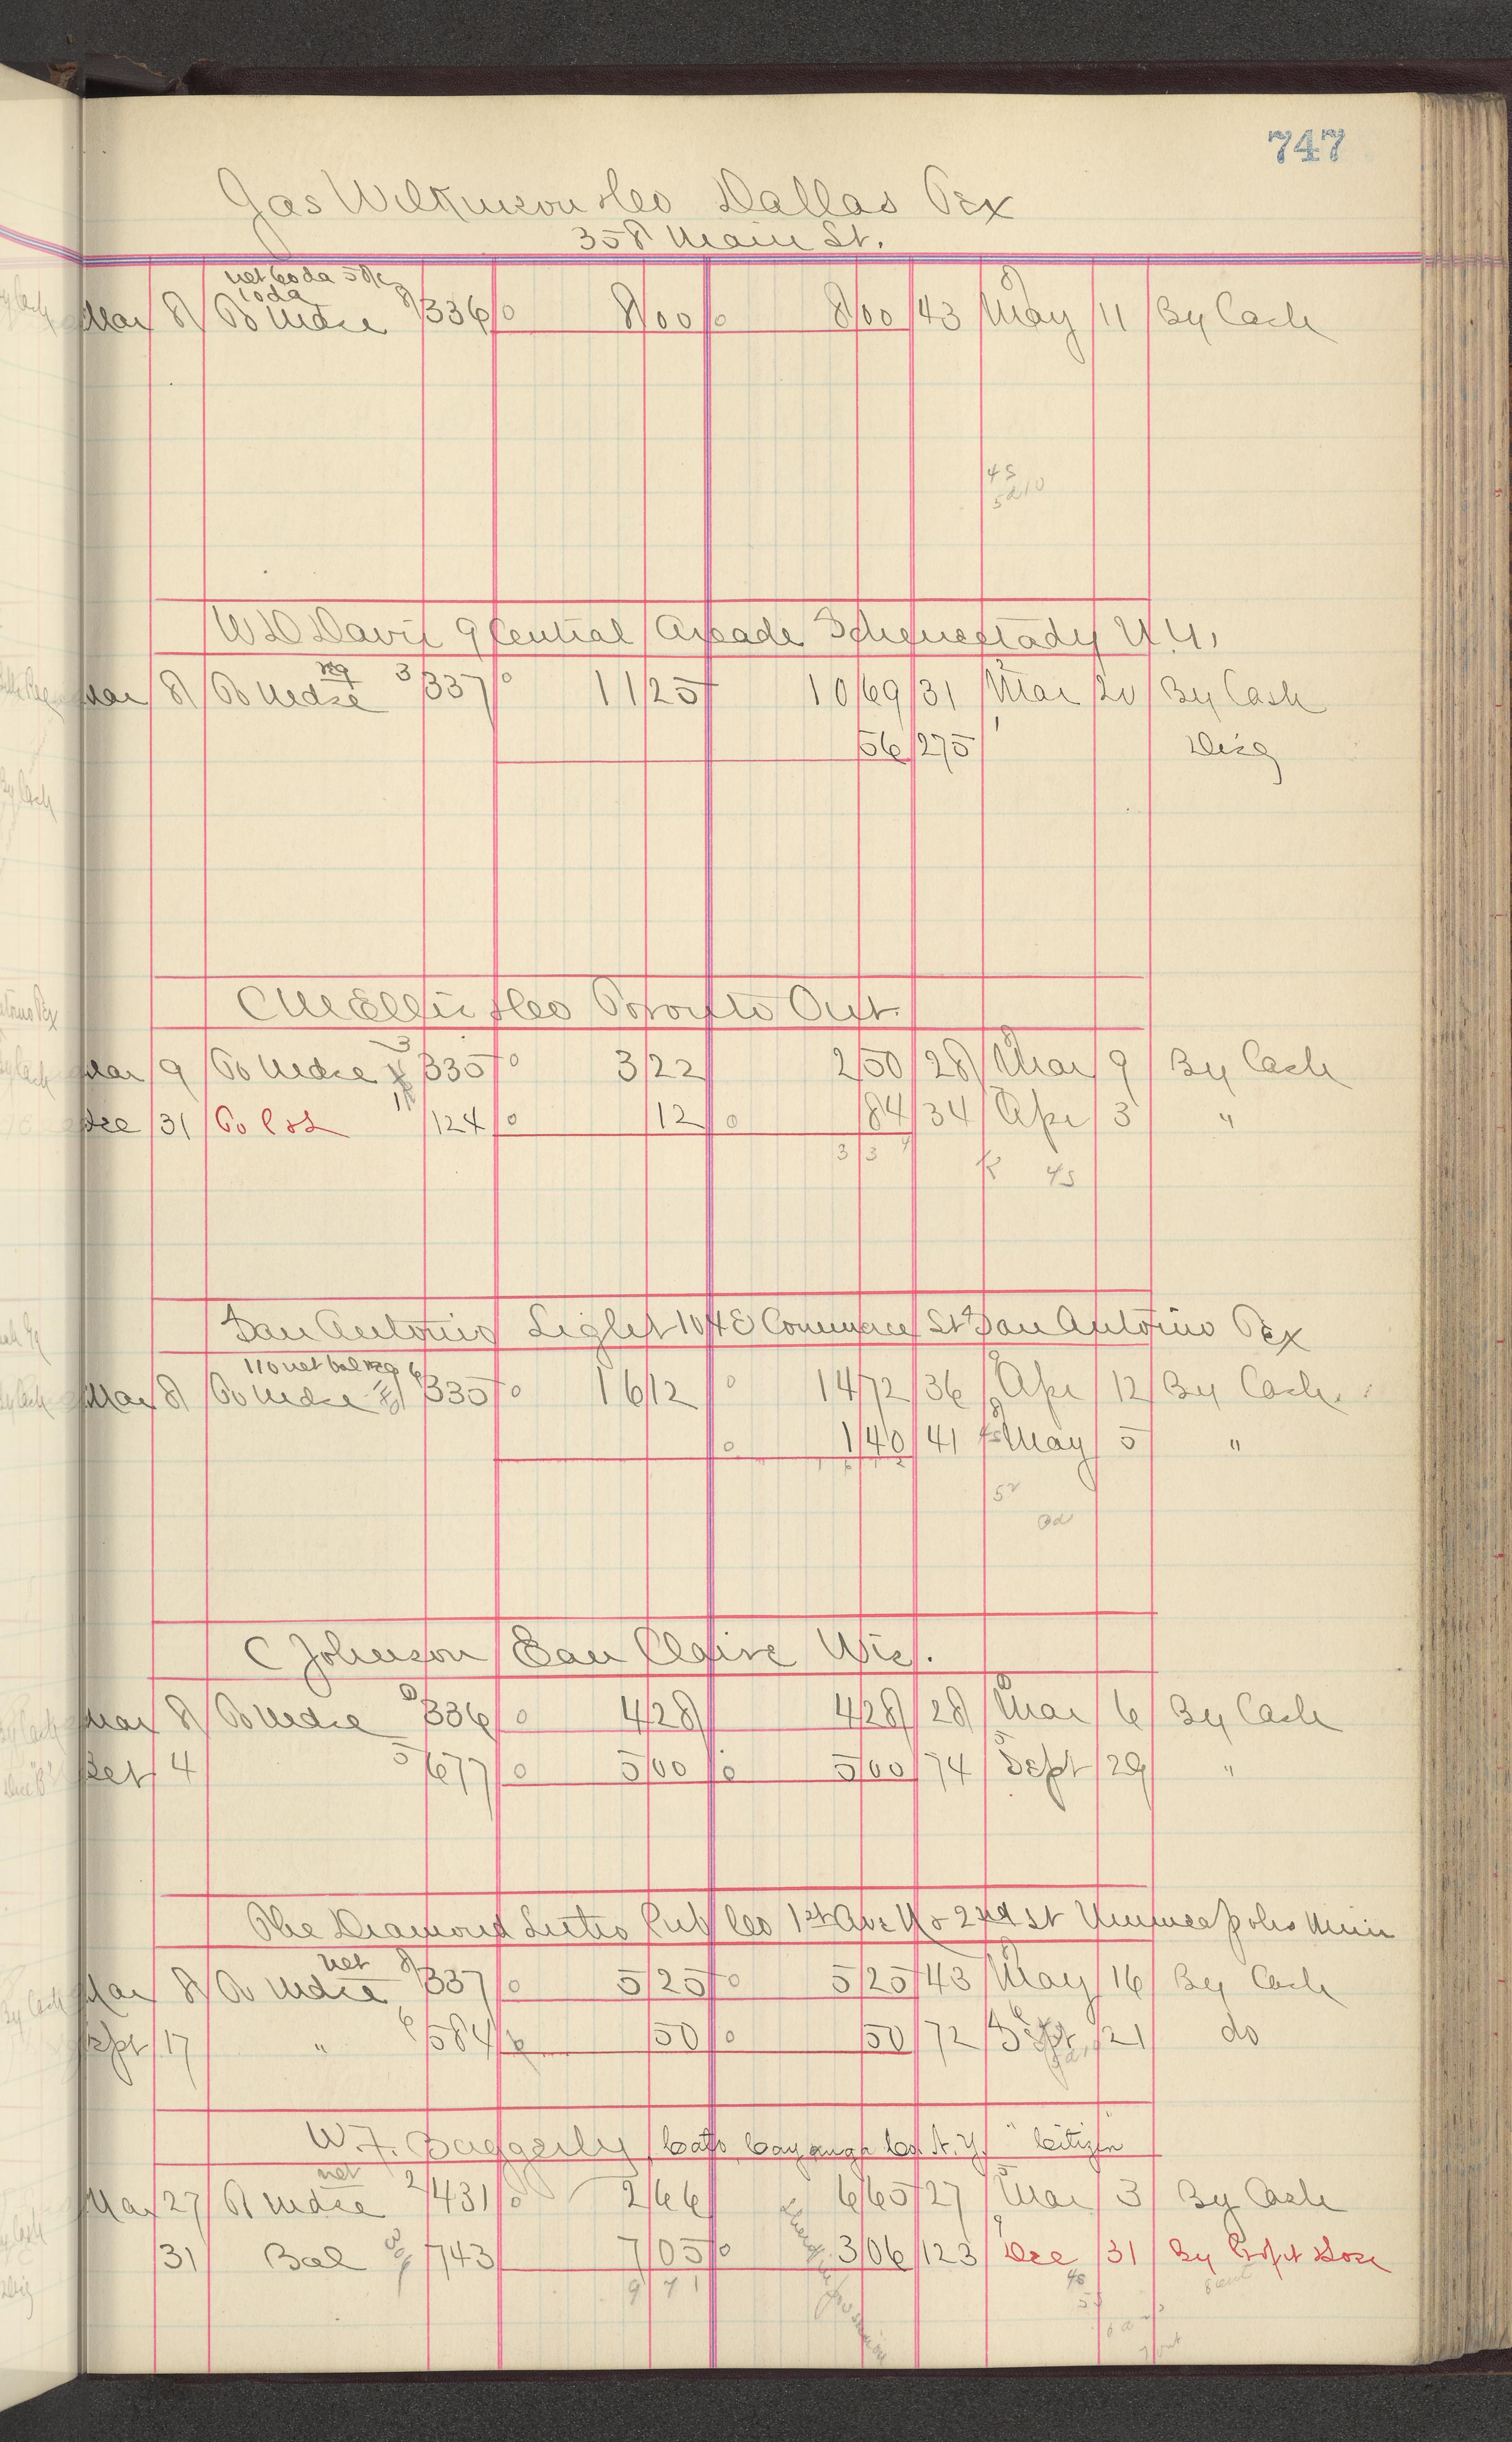 747
Jas Wilkinson & Co Dallas Tex
358 Main St.
net 60 da
10 da
Mar 8 To Mdse 8 336 0 8 00 0 8 00 43 May 11 By Cash
45
5 d 10
W D Davis 9 Central Arcade Schenectady N.Y.
Mar 8 To Mdse 3 337 0 11 25 10 69 31 Mar 20 By Cash
56 275 Disc
C M Ellis & Co Toronto Ont.
Mar 9 To Mdse 3 335 0 3 22 2 50 28 Mar 9 By Cash
Dec 31 To 124 0 12 0 84 34 Apr 3 "
3 3 4
45
San Antonio Light 104 E Commerce St San Antonio Tex
110 net bal reg 6
Mar 8 To Mdse 335 0 16 12 0 14 72 36 Apr 12 By Cash.
0 1 40 41 May 5 "
C Johnson Eau Claire Wis.
Mar 8 To Mdse 336 0 4 28 4 28 28 Mar 6 By Cash
Oct 4 5 677 0 5 00 0 5 00 74 Sept 29 "
The Diamond Litho Pub Co 1st Ave No & 2nd St Minneapolis Minn
net
Mar 8 To Mdse 8 337 0 5 25 0 5 25 43 May 16 By Cash
Sept 17 " 6 584 50 0 50 72 Sept 21 do
W. F. Baggerly Cato Cayauga Co. N.Y. "Citizen"
net
Mar 27 To Mdse 2 431 0 2 66 6 65 27 Mar 3 By Cash
31 Bal 743 7 05 0 3 06 123 Dec 31 By Profit & Loss
9 7 1